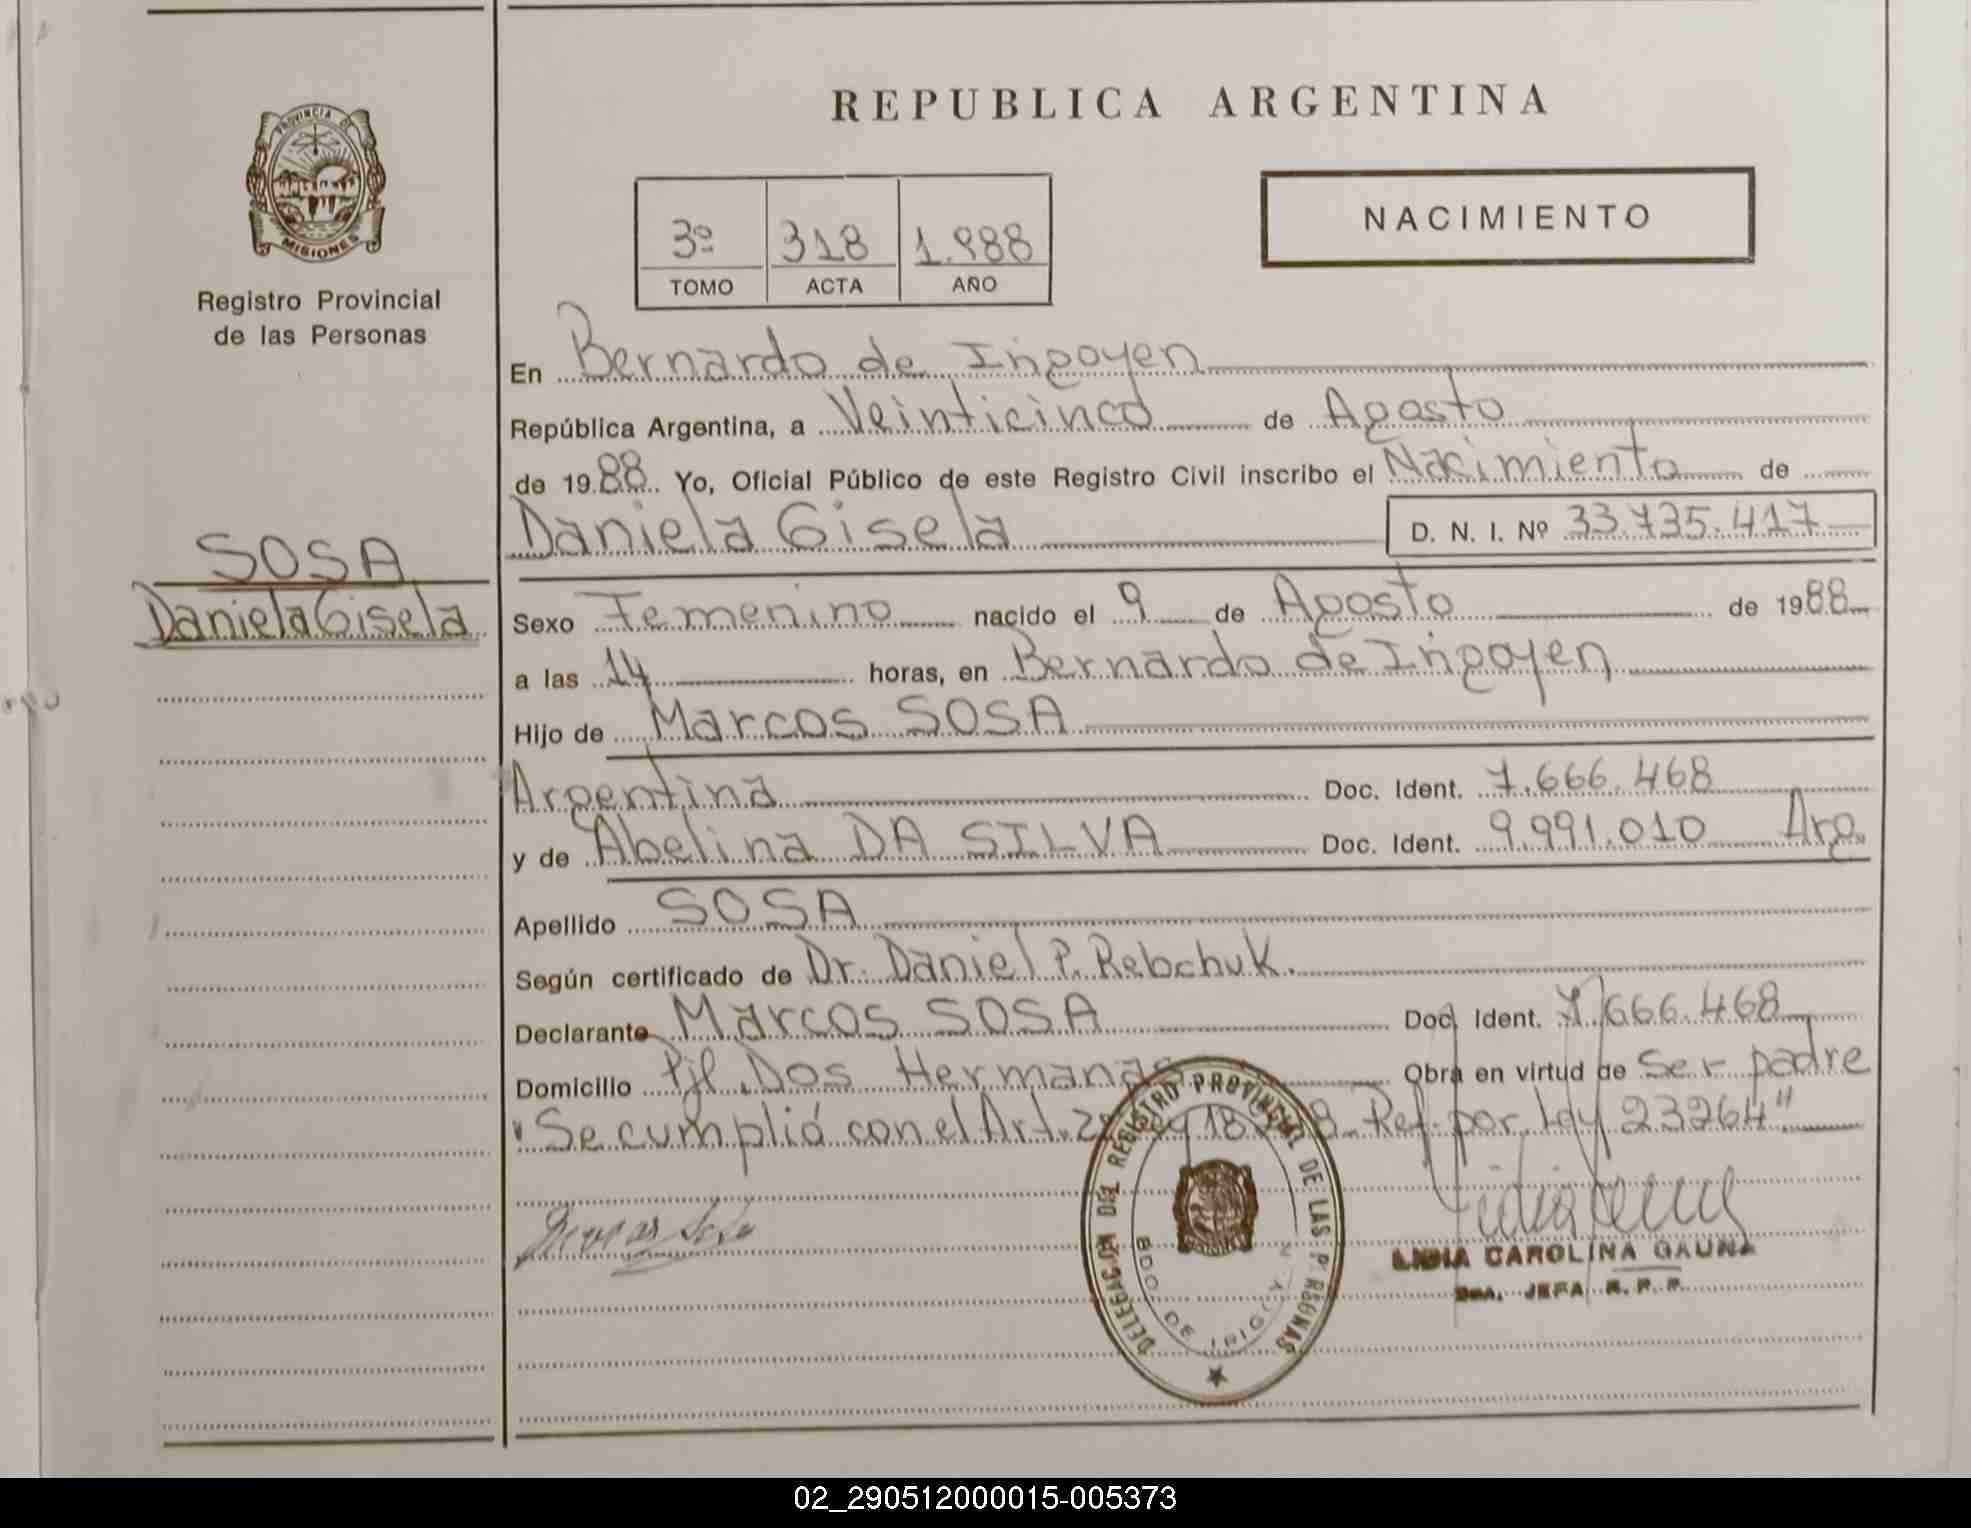 PROVINCIA DE
MISIONES
Registro Provincial
de las Personas
SOSA
Daniela Gisela
REPUBLICA ARGENTINA
3º 318 1.988
TOMO ACTA AÑO
NACIMIENTO
En Bernardo de Irigoyen
República Argentina, a Veinticinco de Agosto
de 1988 Yo, Oficial Público de este Registro Civil inscribo el Nacimiento de
Daniela Gisela D. N. I. Nº 33.735.417
Sexo Femenino nacido el 9 de Agosto de 1988
a las 14 horas, en Bernardo de Irigoyen
Hijo de Marcos SOSA
Argentina Doc. Ident. 7.666.468
y de Abelina DA SILVA Doc. Ident. 9.991.010 Arg.
Apellido SOSA
Según certificado de Dr. Daniel P. Rebchuk.
Declarante Marcos SOSA Doc. Ident. 7.666.468
Domicilio Pje. Dos Hermanas Obra en virtud de ser padre
"Se cumplió con el Art. Ref. por Ley 23264"
Marcos Sosa
DELEGACION DEL REGISTRO PROVINCIAL DE LAS PERSONAS
BDO. DE IRIGOYEN
LIDIA CAROLINA GAUNA
JEFA R. P. P.
02_290512000015-005373